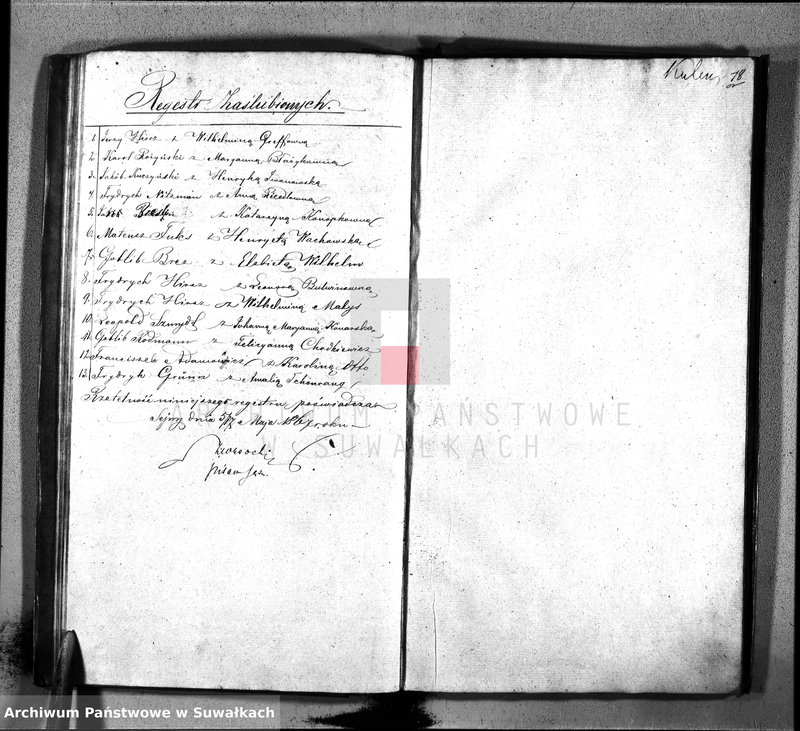 Regestr Zaślubionych.
1. Jerzy Hirsz z Wilhelminą Greffówną
2. Karol Rożyński z Maryanną Błażykówną
3. Jakób Kuczyński z Henryką Iwanowską
4. Frydrych Nitzman z Anną
5. z Katarzyną Konopkówną
6. Mateusz Fuks z Henryetą Wachowską
7. Gotlib Brez z Elżbietą Wilhelm
8. Frydrych Hirsz z Leonorą
9. Frydrych Hirsz z Wilhelminą Małys
10. Leopold Szmydt z Johanną Maryanną Konarską
11. Gotlib Rodmann z Felicyanną Chodkiewicz
12. Franciszek Adamowicz z Karoliną Otto
13. Frydrych Grünn z Amalią
Rzetelność niniejszego regestru poświadczam
Sejny dnia Maja roku
Kulen, 18
ARCHIWUM PAŃSTWOWE
W SUWAŁKACH
Archiwum Państwowe w Suwałkach